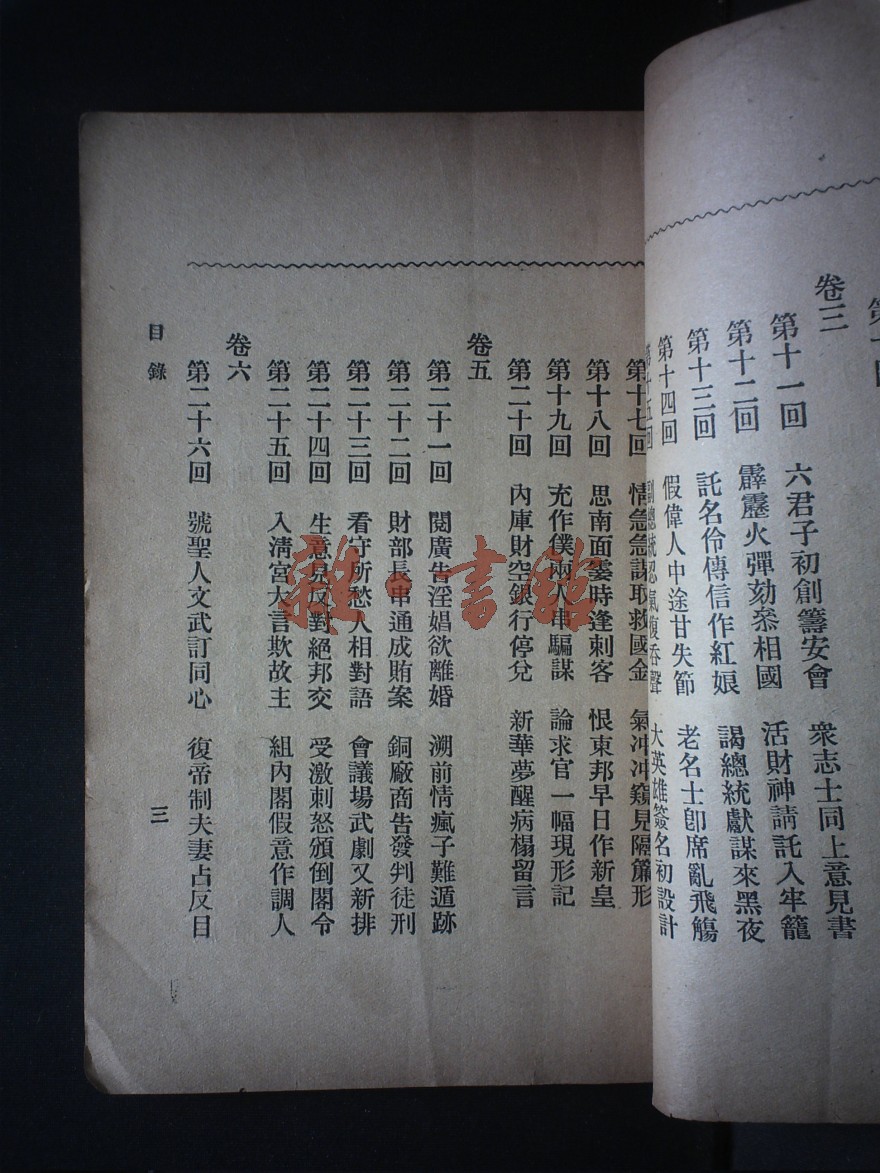 卷三
第十一回 六君子初創籌安會 衆志士同上意見書
第十二回 霹靂火彈劾叅相國 活財神請託入牢籠
第十三回 託名伶傳信作紅娘 謁總統獻謀來黑夜
第十四回 假偉人中途甘失節 老名士卽席亂飛觴
第十五回 副總統忍氣復吞聲 大英雄簽名初設計
第十七回 情急急謀取救國金 氣冲冲窺見隔簾形
第十八回 思南面霎時逢刺客 恨東邦早日作新皇
第十九回 充作僕兩人串騙謀 論求官一幅現形記
第二十回 內庫財空銀行停兌 新華夢醒病榻留言
卷五
第二十一回 閱廣告淫娼欲離婚 溯前情瘋子難遁跡
第二十二回 財部長串通成賄案 銅廠商告發判徒刑
第二十三回 看守所愁人相對語 會議場武劇又新排
第二十四回 生意見反對絕邦交 受激刺怒頒倒閣令
第二十五回 入淸宮大言欺故主 組內閣假意作調人
卷六
第二十六回 號聖人文武訂同心 復帝制夫妻占反目
目錄
三
雜·書館